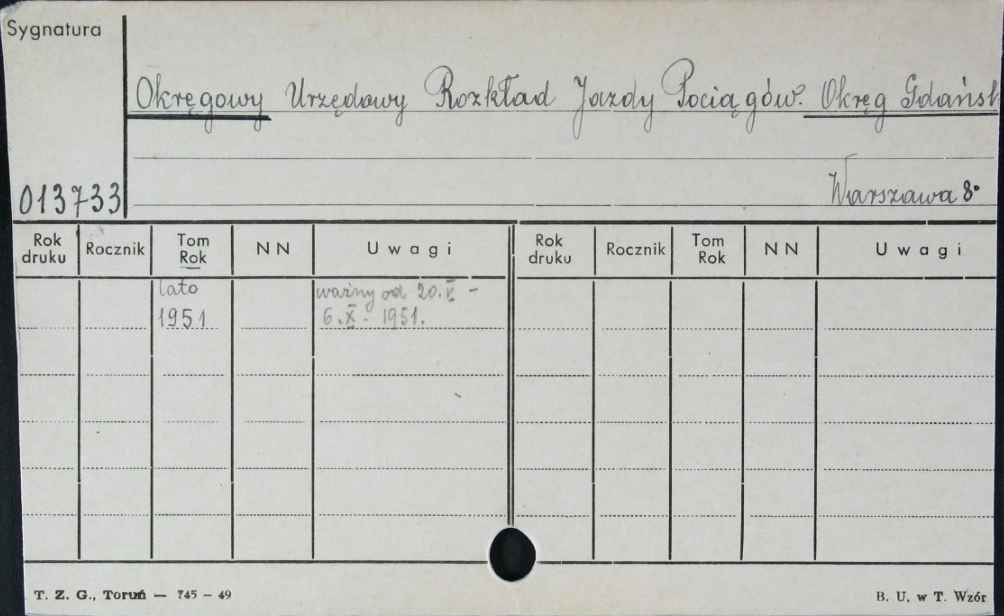 Sygnatura
Okręgowy Urzędowy Rozkład Jazdy Pociągów. Okręg Gdańsk
013733
Warszawa 8°
Rok druku Rocznik Tom Rok NN Uwagi Rok druku Rocznik Tom Rok NN Uwagi
lato ważny od 20.V –
1951 6.X. 1951.
T. Z. G., Toruń — 745 – 49 B. U. w T. Wzór